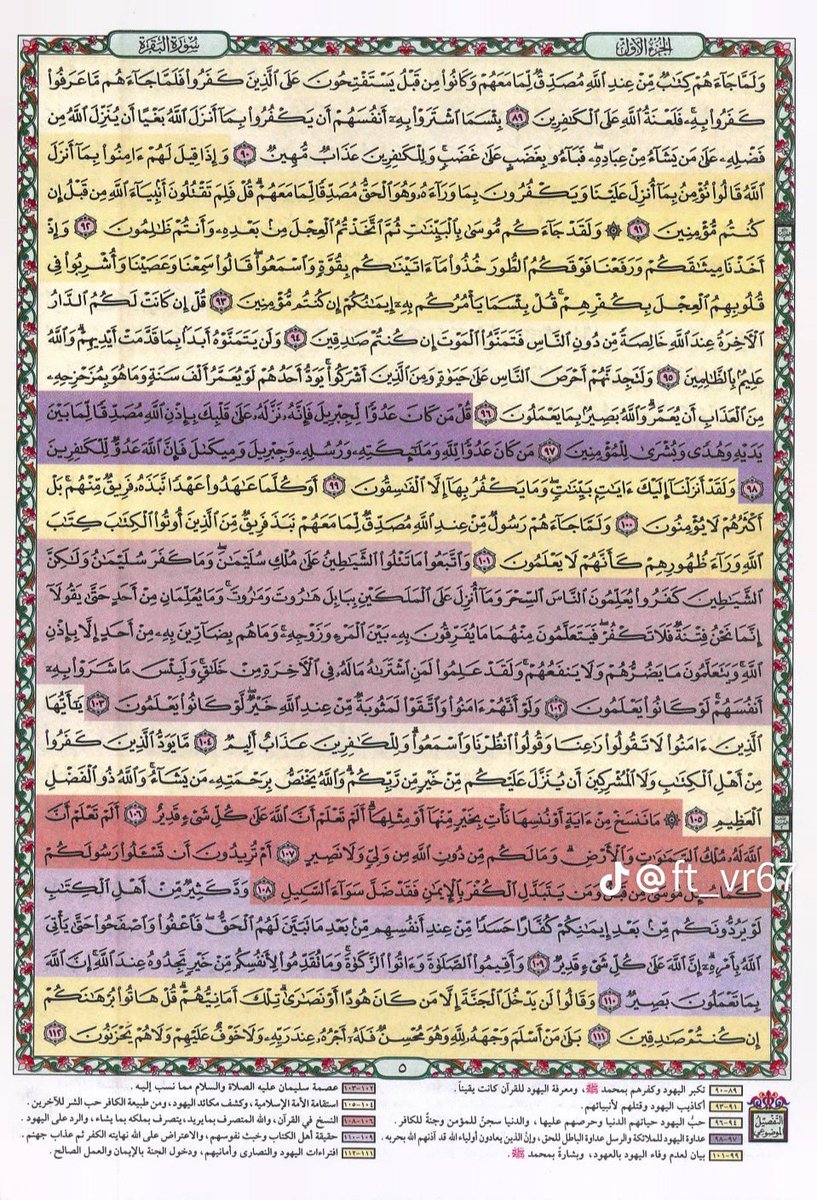 الجزء الأول
سورة البقرة
وَلَمَّا جَآءَهُمْ كِتَٰبٌ مِّنْ عِندِ ٱللَّهِ مُصَدِّقٌ لِّمَا مَعَهُمْ وَكَانُوا۟ مِن قَبْلُ يَسْتَفْتِحُونَ عَلَى ٱلَّذِينَ كَفَرُوا۟ فَلَمَّا جَآءَهُم مَّا عَرَفُوا۟
كَفَرُوا۟ بِهِۦ ۚ فَلَعْنَةُ ٱللَّهِ عَلَى ٱلْكَٰفِرِينَ ٨٩ بِئْسَمَا ٱشْتَرَوْا۟ بِهِۦٓ أَنفُسَهُمْ أَن يَكْفُرُوا۟ بِمَآ أَنزَلَ ٱللَّهُ بَغْيًا أَن يُنَزِّلَ ٱللَّهُ مِن
فَضْلِهِۦ عَلَىٰ مَن يَشَآءُ مِنْ عِبَادِهِۦ ۖ فَبَآءُو بِغَضَبٍ عَلَىٰ غَضَبٍ ۚ وَلِلْكَٰفِرِينَ عَذَابٌ مُّهِينٌ ٩٠ وَإِذَا قِيلَ لَهُمْ ءَامِنُوا۟ بِمَآ أَنزَلَ
ٱللَّهُ قَالُوا۟ نُؤْمِنُ بِمَآ أُنزِلَ عَلَيْنَا وَيَكْفُرُونَ بِمَا وَرَآءَهُۥ وَهُوَ ٱلْحَقُّ مُصَدِّقًا لِّمَا مَعَهُمْ ۗ قُلْ فَلِمَ تَقْتُلُونَ أَنۢبِيَآءَ ٱللَّهِ مِن قَبْلُ إِن
كُنتُم مُّؤْمِنِينَ ٩١ ۞ وَلَقَدْ جَآءَكُم مُّوسَىٰ بِٱلْبَيِّنَٰتِ ثُمَّ ٱتَّخَذْتُمُ ٱلْعِجْلَ مِنۢ بَعْدِهِۦ وَأَنتُمْ ظَٰلِمُونَ ٩٢ وَإِذْ
أَخَذْنَا مِيثَٰقَكُمْ وَرَفَعْنَا فَوْقَكُمُ ٱلطُّورَ خُذُوا۟ مَآ ءَاتَيْنَٰكُم بِقُوَّةٍ وَٱسْمَعُوا۟ ۖ قَالُوا۟ سَمِعْنَا وَعَصَيْنَا وَأُشْرِبُوا۟ فِى
قُلُوبِهِمُ ٱلْعِجْلَ بِكُفْرِهِمْ ۚ قُلْ بِئْسَمَا يَأْمُرُكُم بِهِۦٓ إِيمَٰنُكُمْ إِن كُنتُم مُّؤْمِنِينَ ٩٣ قُلْ إِن كَانَتْ لَكُمُ ٱلدَّارُ
ٱلْءَاخِرَةُ عِندَ ٱللَّهِ خَالِصَةً مِّن دُونِ ٱلنَّاسِ فَتَمَنَّوُا۟ ٱلْمَوْتَ إِن كُنتُمْ صَٰدِقِينَ ٩٤ وَلَن يَتَمَنَّوْهُ أَبَدًۢا بِمَا قَدَّمَتْ أَيْدِيهِمْ ۗ وَٱللَّهُ
عَلِيمٌۢ بِٱلظَّٰلِمِينَ ٩٥ وَلَتَجِدَنَّهُمْ أَحْرَصَ ٱلنَّاسِ عَلَىٰ حَيَوٰةٍ وَمِنَ ٱلَّذِينَ أَشْرَكُوا۟ ۚ يَوَدُّ أَحَدُهُمْ لَوْ يُعَمَّرُ أَلْفَ سَنَةٍ وَمَا هُوَ بِمُزَحْزِحِهِۦ
مِنَ ٱلْعَذَابِ أَن يُعَمَّرَ ۗ وَٱللَّهُ بَصِيرٌۢ بِمَا يَعْمَلُونَ ٩٦ قُلْ مَن كَانَ عَدُوًّا لِّجِبْرِيلَ فَإِنَّهُۥ نَزَّلَهُۥ عَلَىٰ قَلْبِكَ بِإِذْنِ ٱللَّهِ مُصَدِّقًا لِّمَا بَيْنَ
يَدَيْهِ وَهُدًى وَبُشْرَىٰ لِلْمُؤْمِنِينَ ٩٧ مَن كَانَ عَدُوًّا لِّلَّهِ وَمَلَٰٓئِكَتِهِۦ وَرُسُلِهِۦ وَجِبْرِيلَ وَمِيكَىٰلَ فَإِنَّ ٱللَّهَ عَدُوٌّ لِّلْكَٰفِرِينَ
٩٨ وَلَقَدْ أَنزَلْنَآ إِلَيْكَ ءَايَٰتٍۭ بَيِّنَٰتٍ ۖ وَمَا يَكْفُرُ بِهَآ إِلَّا ٱلْفَٰسِقُونَ ٩٩ أَوَكُلَّمَا عَٰهَدُوا۟ عَهْدًا نَّبَذَهُۥ فَرِيقٌ مِّنْهُم ۚ بَلْ
أَكْثَرُهُمْ لَا يُؤْمِنُونَ ١٠٠ وَلَمَّا جَآءَهُمْ رَسُولٌ مِّنْ عِندِ ٱللَّهِ مُصَدِّقٌ لِّمَا مَعَهُمْ نَبَذَ فَرِيقٌ مِّنَ ٱلَّذِينَ أُوتُوا۟ ٱلْكِتَٰبَ كِتَٰبَ
ٱللَّهِ وَرَآءَ ظُهُورِهِمْ كَأَنَّهُمْ لَا يَعْلَمُونَ ١٠١ وَٱتَّبَعُوا۟ مَا تَتْلُوا۟ ٱلشَّيَٰطِينُ عَلَىٰ مُلْكِ سُلَيْمَٰنَ ۖ وَمَا كَفَرَ سُلَيْمَٰنُ وَلَٰكِنَّ
ٱلشَّيَٰطِينَ كَفَرُوا۟ يُعَلِّمُونَ ٱلنَّاسَ ٱلسِّحْرَ وَمَآ أُنزِلَ عَلَى ٱلْمَلَكَيْنِ بِبَابِلَ هَٰرُوتَ وَمَٰرُوتَ ۚ وَمَا يُعَلِّمَانِ مِنْ أَحَدٍ حَتَّىٰ يَقُولَآ
إِنَّمَا نَحْنُ فِتْنَةٌ فَلَا تَكْفُرْ ۖ فَيَتَعَلَّمُونَ مِنْهُمَا مَا يُفَرِّقُونَ بِهِۦ بَيْنَ ٱلْمَرْءِ وَزَوْجِهِۦ ۚ وَمَا هُم بِضَآرِّينَ بِهِۦ مِنْ أَحَدٍ إِلَّا بِإِذْنِ
ٱللَّهِ ۚ وَيَتَعَلَّمُونَ مَا يَضُرُّهُمْ وَلَا يَنفَعُهُمْ ۚ وَلَقَدْ عَلِمُوا۟ لَمَنِ ٱشْتَرَىٰهُ مَا لَهُۥ فِى ٱلْءَاخِرَةِ مِنْ خَلَٰقٍ ۚ وَلَبِئْسَ مَا شَرَوْا۟ بِهِۦٓ
أَنفُسَهُمْ ۚ لَوْ كَانُوا۟ يَعْلَمُونَ ١٠٢ وَلَوْ أَنَّهُمْ ءَامَنُوا۟ وَٱتَّقَوْا۟ لَمَثُوبَةٌ مِّنْ عِندِ ٱللَّهِ خَيْرٌ ۖ لَّوْ كَانُوا۟ يَعْلَمُونَ ١٠٣ يَٰٓأَيُّهَا
ٱلَّذِينَ ءَامَنُوا۟ لَا تَقُولُوا۟ رَٰعِنَا وَقُولُوا۟ ٱنظُرْنَا وَٱسْمَعُوا۟ ۗ وَلِلْكَٰفِرِينَ عَذَابٌ أَلِيمٌ ١٠٤ مَّا يَوَدُّ ٱلَّذِينَ كَفَرُوا۟
مِنْ أَهْلِ ٱلْكِتَٰبِ وَلَا ٱلْمُشْرِكِينَ أَن يُنَزَّلَ عَلَيْكُم مِّنْ خَيْرٍ مِّن رَّبِّكُمْ ۗ وَٱللَّهُ يَخْتَصُّ بِرَحْمَتِهِۦ مَن يَشَآءُ ۚ وَٱللَّهُ ذُو ٱلْفَضْلِ
ٱلْعَظِيمِ ١٠٥ ۞ مَا نَنسَخْ مِنْ ءَايَةٍ أَوْ نُنسِهَا نَأْتِ بِخَيْرٍ مِّنْهَآ أَوْ مِثْلِهَآ ۗ أَلَمْ تَعْلَمْ أَنَّ ٱللَّهَ عَلَىٰ كُلِّ شَىْءٍ قَدِيرٌ ١٠٦ أَلَمْ تَعْلَمْ أَنَّ
ٱللَّهَ لَهُۥ مُلْكُ ٱلسَّمَٰوَٰتِ وَٱلْأَرْضِ ۗ وَمَا لَكُم مِّن دُونِ ٱللَّهِ مِن وَلِىٍّ وَلَا نَصِيرٍ ١٠٧ أَمْ تُرِيدُونَ أَن تَسْـَٔلُوا۟ رَسُولَكُمْ
كَمَا سُئِلَ مُوسَىٰ مِن قَبْلُ ۗ وَمَن يَتَبَدَّلِ ٱلْكُفْرَ بِٱلْإِيمَٰنِ فَقَدْ ضَلَّ سَوَآءَ ٱلسَّبِيلِ ١٠٨ وَدَّ كَثِيرٌ مِّنْ أَهْلِ ٱلْكِتَٰبِ
@ft_vr67
لَوْ يَرُدُّونَكُم مِّنۢ بَعْدِ إِيمَٰنِكُمْ كُفَّارًا حَسَدًا مِّنْ عِندِ أَنفُسِهِم مِّنۢ بَعْدِ مَا تَبَيَّنَ لَهُمُ ٱلْحَقُّ ۖ فَٱعْفُوا۟ وَٱصْفَحُوا۟ حَتَّىٰ يَأْتِىَ
ٱللَّهُ بِأَمْرِهِۦٓ ۗ إِنَّ ٱللَّهَ عَلَىٰ كُلِّ شَىْءٍ قَدِيرٌ ١٠٩ وَأَقِيمُوا۟ ٱلصَّلَوٰةَ وَءَاتُوا۟ ٱلزَّكَوٰةَ ۚ وَمَا تُقَدِّمُوا۟ لِأَنفُسِكُم مِّنْ خَيْرٍ تَجِدُوهُ عِندَ ٱللَّهِ ۗ إِنَّ ٱللَّهَ
بِمَا تَعْمَلُونَ بَصِيرٌ ١١٠ وَقَالُوا۟ لَن يَدْخُلَ ٱلْجَنَّةَ إِلَّا مَن كَانَ هُودًا أَوْ نَصَٰرَىٰ ۗ تِلْكَ أَمَانِيُّهُمْ ۗ قُلْ هَاتُوا۟ بُرْهَٰنَكُمْ
إِن كُنتُمْ صَٰدِقِينَ ١١١ بَلَىٰ مَنْ أَسْلَمَ وَجْهَهُۥ لِلَّهِ وَهُوَ مُحْسِنٌ فَلَهُۥٓ أَجْرُهُۥ عِندَ رَبِّهِۦ وَلَا خَوْفٌ عَلَيْهِمْ وَلَا هُمْ يَحْزَنُونَ ١١٢
٥
التفصيل الموضوعي
٨٩-٩٠ تكبر اليهود وكفرهم بمحمد ﷺ، ومعرفة اليهود للقرآن كانت يقيناً.
٩١-٩٣ أكاذيب اليهود وقتلهم لأنبيائهم.
٩٤-٩٦ حبُّ اليهود حياتهم الدنيا وحرصهم عليها، والدنيا سجنٌ للمؤمن وجنةٌ للكافر.
٩٧-٩٨ عداوة اليهود للملائكة والرسل عداوة الباطل للحق، وإنَّ الذين يعادون أولياء الله قد آذنهم الله بحربه.
٩٩-١٠١ بيان لعدم وفاء اليهود بالعهود، وبشارةٌ بمحمد ﷺ.
١٠٢-١٠٣ عصمة سليمان عليه الصلاة والسلام مما نسب إليه.
١٠٤-١٠٥ استقامة الأمة الإسلامية، وكشف مكائد اليهود، ومن طبيعة الكافر حب الشر للآخرين.
١٠٦-١٠٨ النسخ في القرآن، والله المتصرف بمايريد، يتصرف بملكه بما يشاء، والرد على اليهود.
١٠٩-١١٠ حقيقة أهل الكتاب وخبث نفوسهم، والاعتراض على الله نهايته الكفر ثم عذاب جهنم.
١١١-١١٢ افتراءات اليهود والنصارى وأمانيهم، ودخول الجنة بالإيمان والعمل الصالح.